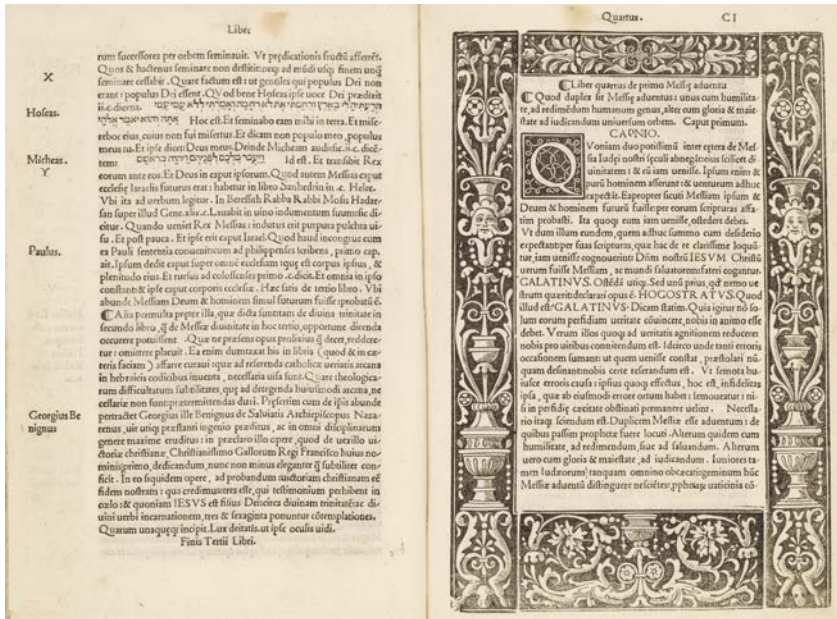 Liber
rum successores per orbem seminauit. Vt prędicationis fructũ afferrẽt.
Quos & hactenus seminare non destitit: neq; ad mũdi usq; finem unq̃
seminare cessabit. Quare factum est: ut gentiles qui populus Dei non
erant: populus Dei essent. QVod bene Hoseas ipse uoce Dei prædixit
ii.c.dicens.
Hoc est. Et seminabo eam mihi in terra. Et mise/
Hoseas.
rebor eius, cuius non fui misertus. Et dicam non populo meo, populus
meus tu. Et ipse dicet: Deus meus. Deinde Micheam audi sic.ii.c. dicẽ
tem:
Id est. Et transibit Rex
Micheas.
eorum ante eos. Et Deus in caput ipsorum. Quod autem Messias caput
ecclesię Israelis futurus erat: habetur in libro Sanhedrin in c. Helec.
Vbi ita ad uerbum legitur. In Beresith Rabba Rabbi Mosis Hadar/
san super illud Gene.xlix.c. Lauabit in uino indumentum suum: sic di
citur. Quando ueniet Rex Messias: indutus erit purpura pulchra ui/
su. Et post pauca. Et ipse erit caput Israel. Quod haud incongrue cum
ea Pauli sententia conuenit: cum ad philippenses scribens, primo cap.
Paulus.
ait. Ipsum dedit caput super omnẽ ecclesiam: quę est corpus ipsius, &
plenitudo eius. Et rursus ad colossenses primo .c.dicit. Et omnia in ipso
constant: & ipse caput corporis ecclesiæ. Hæc satis de tertio libro. Vbi
abunde Messiam Deum & hominem simul futurum fuisse: probatũ ẽ.
Alia permulta preter illa, quæ dicta sunt: tam de diuina trinitate in
secundo libro, q̃ de Messiæ diuinitate in hoc tertio, opportune dicenda
occurere potuissent. Quæ ne præsens opus prolixius q̃ decet, reddere/
tur: omittere placuit. Ea enim dumtaxat his in libris (quod & in cæ/
teris faciam) affarre curaui: quæ ad referenda catholicæ ueritatis arcana
in hebraicis codicibus inuenta, necessaria uisa sunt. Quare theologica/
rum difficultatum subtilitates, quę ad detegenda huiusmodi arcana, ne
cessariæ non sunt: prætermittendas duxi. Pręsertim cum de ipsis abunde
pertractet Georgius ille Benignus de Saluiatis Archiepiscopus Naza/
Georgius Be
nignus
renus, uir utiq; præstanti ingenio præditus, ac in omni disciplinarum
genere maxime eruditus: in præclaro illo opere, quod de uexillo ui/
ctoriæ christianæ, Christianissimo Gallorum Regi Francisco huius no/
minis primo, dedicandum, nunc non minus eleganter q̃ subtiliter con/
ficit. In eo siquidem opere, ad probandum uictoriam christianam eẽ
fidem nostram: qua credimus tres esse, qui testimonium perhibent in
cœlo: & quoniam IESVS est filius Dei: circa diuinam trinitatẽ: ac di/
uini uerbi incarnationem, tres & sexaginta ponuntur cõtemplationes.
Quarum unaquęq; incipit. Lux deitatis. ut ipse oculis uidi.
Finis Tertii Libri.
Quartus. CI
Liber quartus de primo Messię aduentu
Quod duplex sit Messię aduentus: unus cum humilita/
te, ad redimẽdum humanum genus, alter cum gloria & maie/
state ad iudicandum uniuersum orbem. Caput primum.
CAPNIO.
QVoniam duo potissimũ inter cętera de Mes/
sia Iudęi nostri sęculi abnegãtouius scilicet di
uinitatem: & eũ iam uenisse. Ipsum enim &
purũ hominem asserunt: & uenturum adhuc
expectãt. Eapropter sicuti Messiam ipsum &
Deum & hominem futurũ fuisse: per eorum scripturas affa/
tim probasti. Ita quoq; eum iam uenisse, ostẽdere debes.
Vt dum illum eundem, quem adhuc summo cum desiderio
expectant: per suas scripturas, quæ hac de re clarissime loquũ/
tur, iam uenisse cognouerint: Dñm nostrũ IESVM Christũ
uerum fuisse Messiam, ac mundi saluatorem: fateri cogantur.
GALATINVS. Ostẽdã utiq;. Sed unũ prius, qđ nemo ue
strum quærit: declarari opus ẽ. HOGOSTRATVS. Quod
illud est? GALATINVS. Dicam statim. Quia igitur nõ so/
lum eorum perfidiam ueritate cõuincere, nobis in animo esse
debet. Verum illos quoq; ad ueritatis agnitionem reducere:
nobis pro uiribus connitendum est. Idcirco unde tanti erroris
occasionem sumant: ut quem uenisse constat, præstolari nũ/
quam desinant: nobis certe referandum est. Vt semota hu/
iusce erroris causa: ipsius quoq; effectus, hoc est, infidelitas
ipsa, quæ ab eiusmodi errore ortum habet: semoueatur: ni/
si in perfidię cæcitate obstinati permanere uelint. Necessa/
rio itaq; sciendum est. Duplicem Messiæ esse aduentum: de
quibus passim prophetæ fuere locuti. Alterum quidem cum
humilitate, ad redimendum, siue ad saluandum. Alterum
uero cum gloria & maiestate, ad iudicandum. Iuniores ta/
men Iudæorum: tanquam omnino obcæcati: geminum hũc
Messiæ aduentũ distinguere nesciẽtes: pphetaꝝ uaticinia cõ/